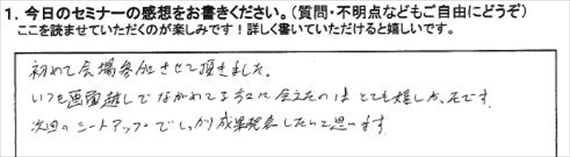 1. 今日のセミナーの感想をお書きください。(質問・不明点などもご自由にどうぞ)
ここを読ませていただくのが楽しみです!詳しく書いていただけると嬉しいです。
初めて会場参加させて頂きました。
いつも画面越しでながめてる方々に会えたのはとても嬉しかったです。
次回のシートアップでしっかり成果発表したいと思います